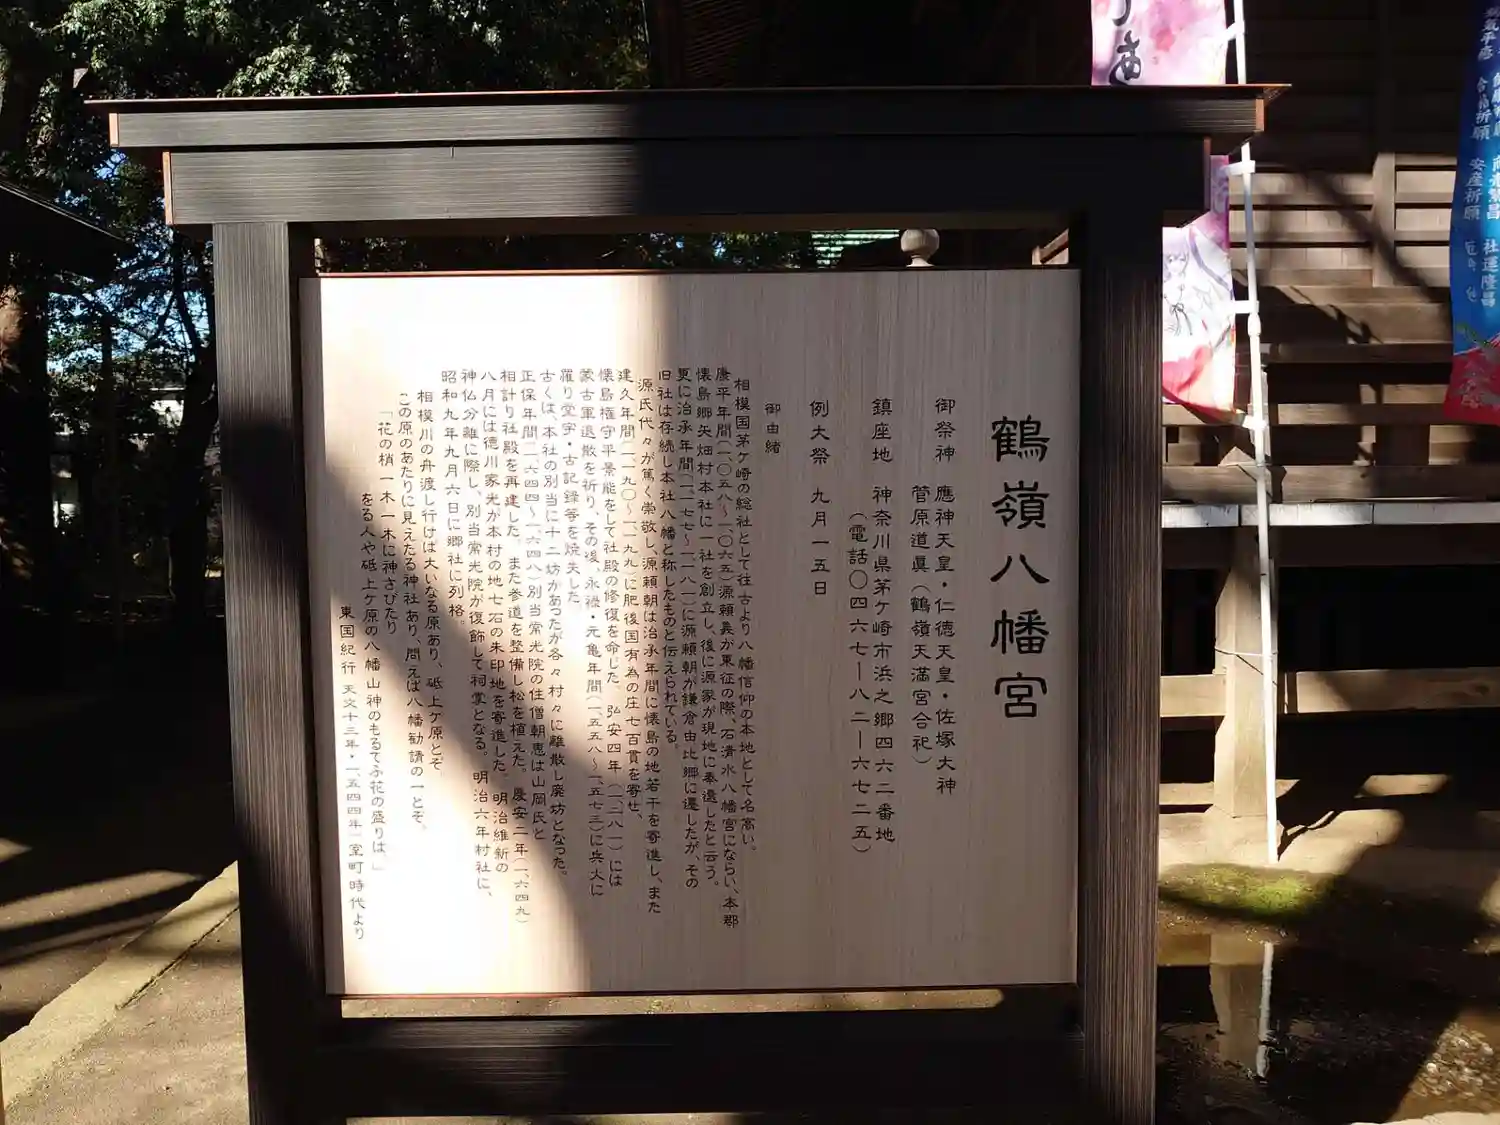 鶴嶺八幡宮
御祭神　應神天皇・仁徳天皇・佐塚大神
菅原道眞（鶴嶺天満宮合祀）
鎮座地　神奈川県茅ケ崎市浜之郷四六二番地
（電話〇四六七ー八二ー六七二五）
例大祭　九月一五日
御由緒
相模国茅ケ崎の総社として往古より八幡信仰の本地として名高い。
康平年間（一、〇五八～一、〇六五）源頼義が東征の際、石清水八幡宮にならい、本郡
懐島郷矢畑村本社に一社を創立し、後に源家が現地に奉遷したと云う。
更に治承年間（一、一七七～一、一八一）に源頼朝が鎌倉由比郷に遷したが、その
旧社は存続し本社八幡と称したものと伝えられている。
源氏代々が篤く崇敬し、源頼朝は治承年間に懐島の地若干を寄進し、また
建久年間（一、一九〇～一、一九九）に肥後国有為の庄七百貫を寄せ、
懐島権守平景能をして社殿の修復を命じた。弘安四年（一、二八一）には
蒙古軍退散を祈り、その後、永禄・元亀年間（一、五五八～一、五七三）に兵火に
罹り堂宇・古記録等を焼失した
古くは、本社の別当に十二坊があったが各々村々に離散し廃坊となった。
正保年間（一、六四四～一、六四八）別当常光院の住僧朝恵は山岡氏と
相計り社殿を再建した。また参道を整備し松を植えた。慶安二年（一、六四九）
八月には徳川家光が本村の地七石の朱印地を寄進した。明治維新の
神仏分離に際し、別当常光院が復飾して祠掌となる。明治六年村社に、
昭和九年九月六日に郷社に列格。
相模川の舟渡し行けば大いなる原あり、砥上ケ原とぞ
この原のあたりに見えたる神社あり、問えば八幡勧請の一とぞ。
「花の梢一木一木に神さびたり
をる人や砥上ケ原の八幡山神のもるてふ花の盛りは」
東国紀行　天文十三年・一、五四四年　室町時代より
安産祈願
社運隆昌